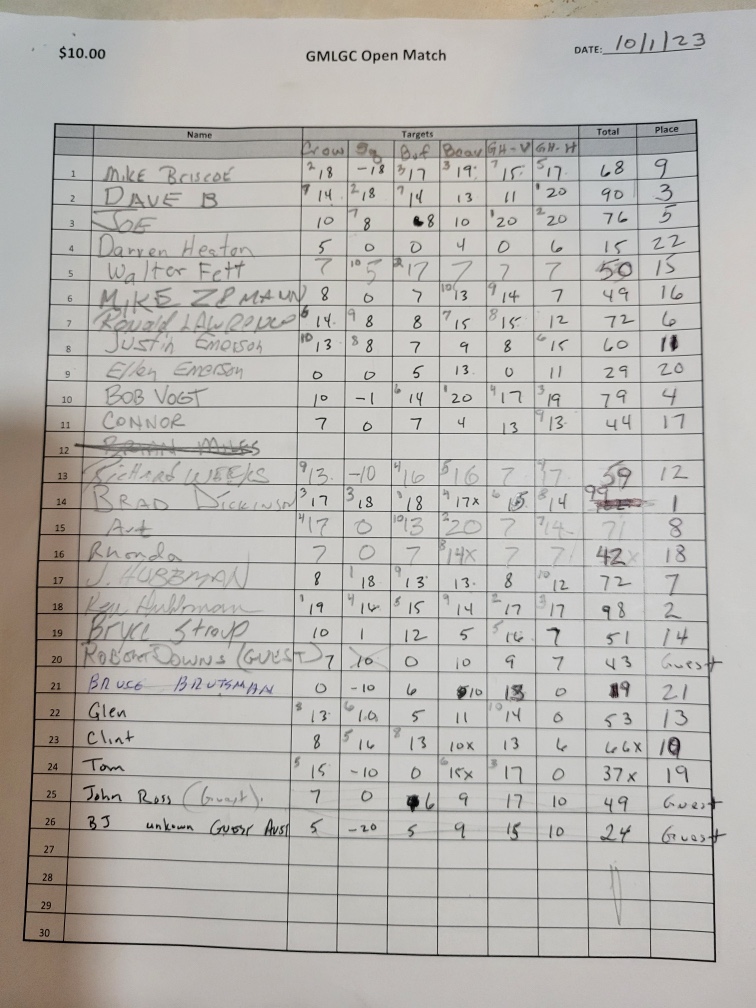 $10.00 GMLGC Open Match DATE: 10/1/23
Name Targets Total Place
Crow Sq Buf Boar GH-V GH-H
1 MIKE BRISCOE 2 18 -18 3 17 3 19 7 15 5 17 68 9
2 DAVE B 7 14 2 18 7 14 13 11 1 20 90 3
3 JOE 10 7 8 8 10 1 20 2 20 76 5
4 Darren Heaton 5 0 0 4 0 6 15 22
5 Walter Fett 7 10 5 2 17 7 7 7 50 15
6 MIKE ZEMAUN 8 0 7 10 13 9 14 7 49 16
7 Ronald 6 14 9 8 8 7 15 8 15 12 72 6
8 Justin Emerson 10 13 8 8 7 9 8 6 15 60 11
9 Ellen Emerson 0 0 5 13 0 11 29 20
10 BOB VOGT 10 -1 6 14 1 20 4 17 3 19 79 4
11 CONNOR 7 0 7 4 13 9 13 44 17
12
13 Richard WEEKS 9 13 -10 4 16 5 16 7 4 17 59 12
14 BRAD DICKINSON 3 17 3 18 1 18 4 17x 6 15 8 14 99 1
15 Art 4 17 0 10 13 2 20 7 7 14 71 8
16 Rhonda 7 0 7 8 14x 7 7 42x 18
17 J. HUBBMAN 8 1 18 9 13 13 8 10 12 72 7
18 Ken Hubbman 1 19 4 16 5 15 9 14 2 17 3 17 98 2
19 Bruce Stroup 10 1 12 5 5 16 7 51 14
20 ROBERT DOWNS (GUEST) 7 10 0 10 9 7 43 Guest
21 BRUCE BRUTSMAN 0 -10 6 10 13 0 19 21
22 Glen 8 13 6 10 5 11 10 14 0 53 13
23 Clint 8 5 16 8 13 10x 13 6 66x 10
24 Tom 5 15 -10 0 6 15x 3 17 0 37x 19
25 John Ross (Guest). 7 0 6 9 17 10 49 Guest
26 BJ unkown GUEST 5 -20 5 9 15 10 24 Guest
27
28
29
30